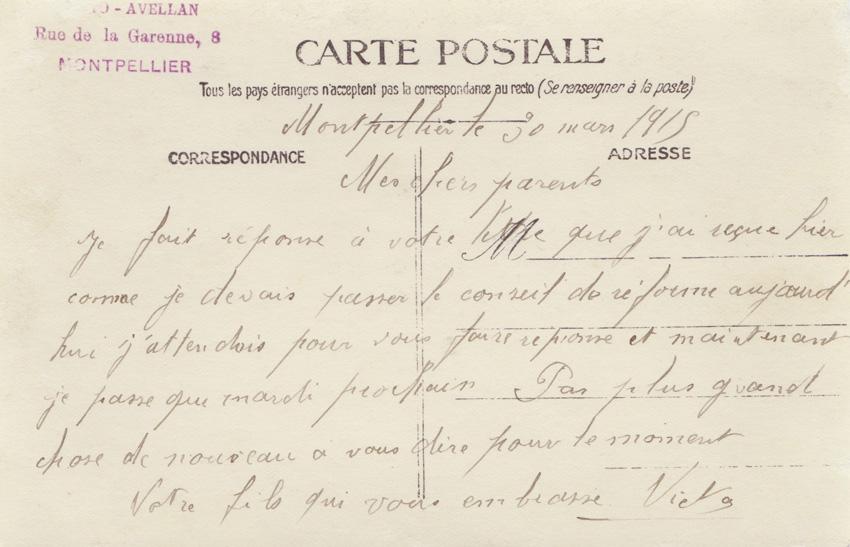 O - AVELLAN
Rue de la Garenne, 8
MONTPELLIER
CARTE POSTALE
Tous les pays étrangers n'acceptent pas la correspondance au recto (Se renseigner à la poste)
Montpellier le 30 mars 1915
CORRESPONDANCE
ADRESSE
Mes chers parents
Je fait réponse à votre que j'ai reçue hier
comme je devais passer le conseil de réforme aujourd'
hui j'attendais pour vous faire reponse et maintenant
je passe que mardi prochain Pas plus grand
chose de nouveau a vous dire pour le moment
Votre fils qui vous embrasse